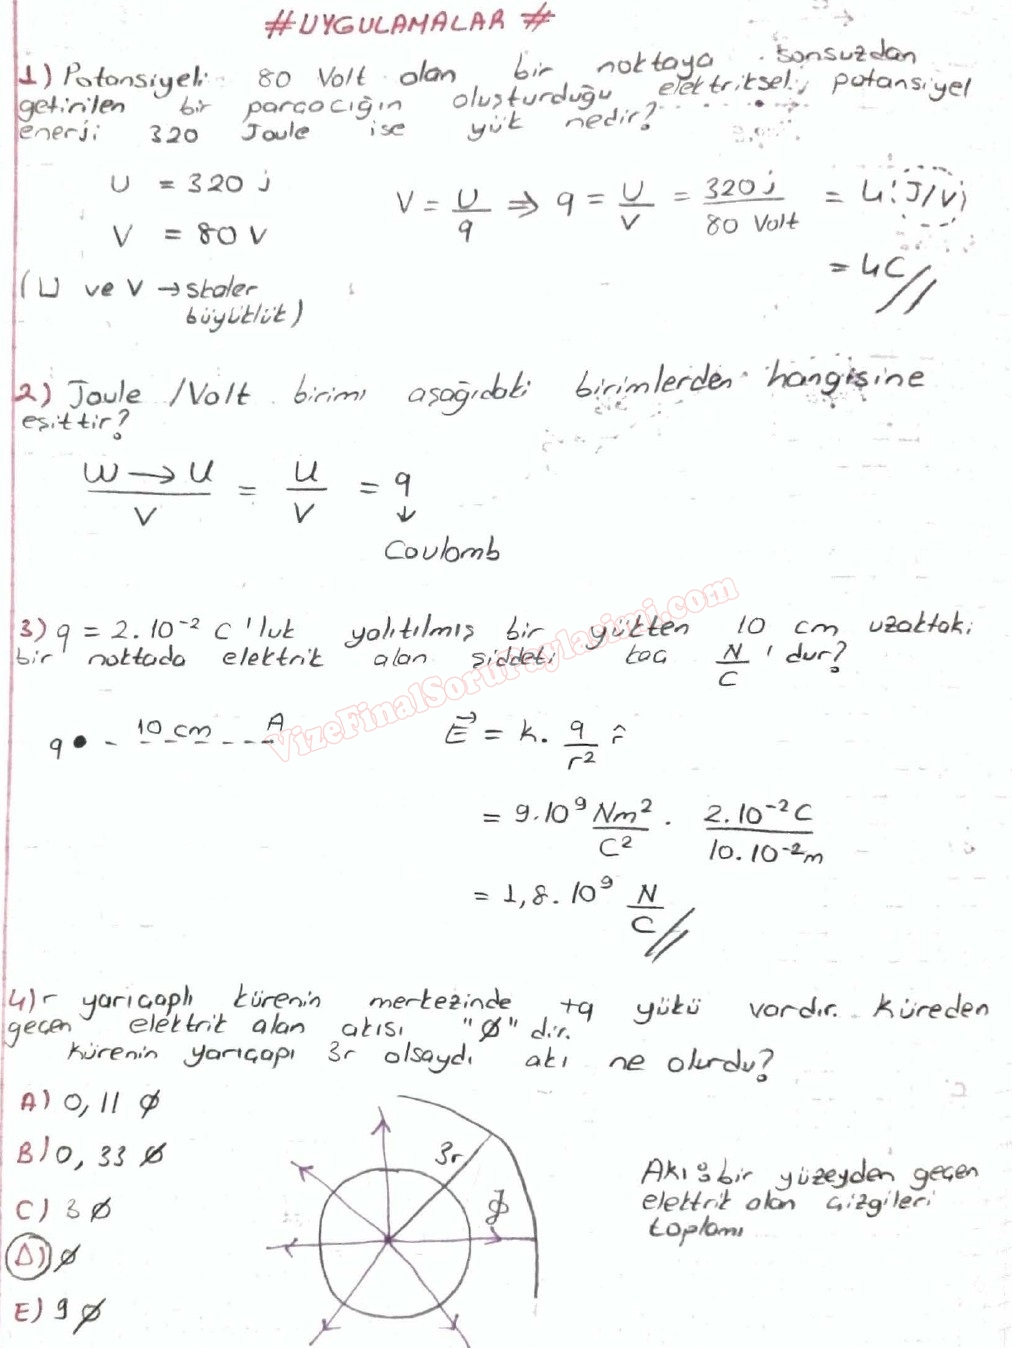 #UYGULAMALAR #
1) Potansiyeli 80 Volt olan bir noktaya sonsuzdan
getirilen bir parçacığın oluşturduğu elektriksel potansiyel
enerji 320 Joule ise yük nedir?
U = 320 j
V = U/q ⇒ q = U/V = 320 j / 80 Volt = 4 (J/V)
V = 80 V
= 4C//
(U ve V → skaler
büyüklük)
2) Joule /Volt birimi aşağıdaki birimlerden hangisine
eşittir?
W → U / V = U/V = q
↓
Coulomb
3) q = 2.10⁻² C 'luk yalıtılmış bir yükten 10 cm uzaktaki
bir noktada elektrik alan şiddeti kaç N/C 'dur?
q • - 10 cm - - - A
E⃗ = k. q/r² r̂
= 9.10⁹ Nm²/C² . 2.10⁻² C / 10.10⁻² m
= 1,8.10⁹ N/C //
4) r yarıçaplı kürenin merkezinde +q yükü vardır. Küreden
geçen elektrik alan akısı "Ø" dir.
Kürenin yarıçapı 3r olsaydı akı ne olurdu?
A) 0,11 Ø
B) 0,33 Ø
C) 3 Ø
D) Ø
E) 9 Ø
3r
Akı : bir yüzeyden geçen
elektrik alan çizgileri
toplamı
VizeFinalSoruPaylasimi.com